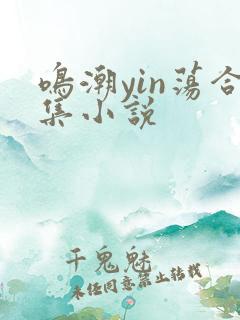 鸣潮yin荡合
集小说
千鬼魅
未经同意禁止转载